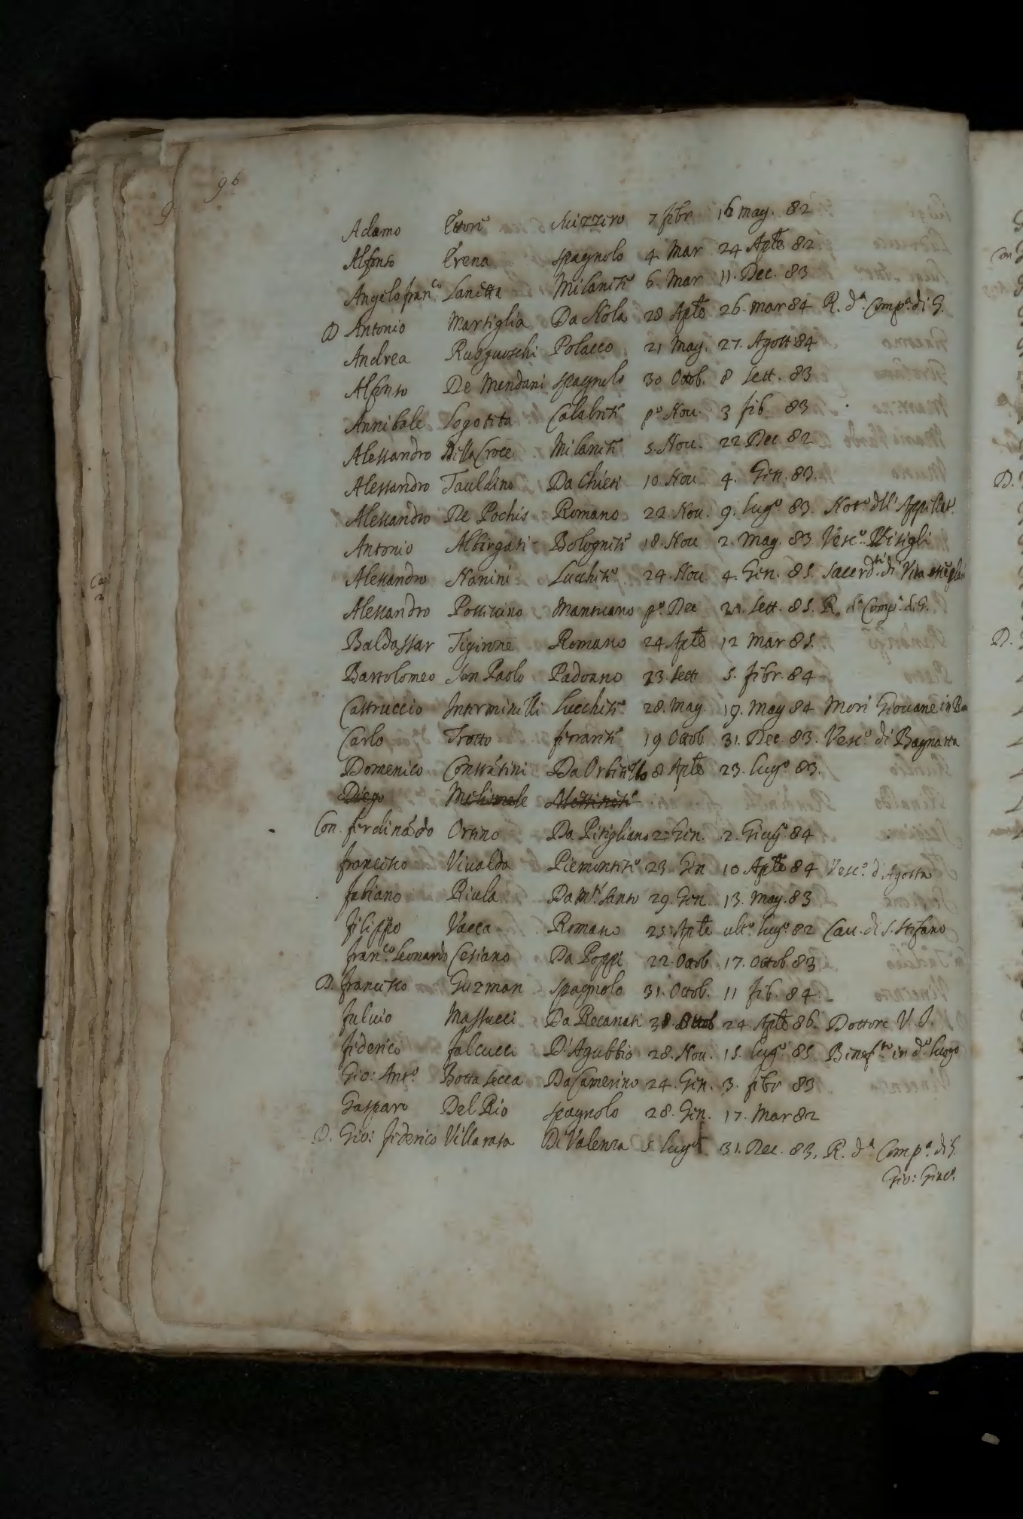 96
Adamo Ettori Suizzero 7 febr 16 may. 82
Alfonso Erena spagnolo 4. Mar 24 Aple 82
Angelo franco. Sanetta Milanese 6. Mar 11. Dec. 83
D Antonio Martiglia Da Nola 28 Aple 26. mar 84 R. da Compa. di G.
Andrea Polacco 21 May. 27. Agost 84
Alfonso De Mendani spagnolo 30 Ottob. 8 Sett. 83
Annibale Logoteta Calabrese po Nou. 3 feb 83
Alessandro Della Croce Milanese 5 Nou. 22 Dec 82
Alessandro Tauldino Da Chieri 10 Nou 4. Gen. 83
Alessandro De Pochis Romano 22. Nou. 9. Lugo 83. Noto dell'
Antonio Albergati Bolognese 18. Nou 2. May 83 Vesco. Bisegli
Alessandro Nanini Lucchese 24. Nou 4. Gen. 85. Sacerdte di
Alessandro Possevino Mantuano po. Dec 21. Sett. 85. R. da Compa di G.
Baldassar Romano 24 Aple 12 Mar 85.
Bartolomeo San Paolo Padoano 23 Sett 5. febr. 84
Castruccio Interminelli Lucchese 28. May 19. May 84 Morì Giouane in
Carlo Trotto ferrarese 19 Ottob 31. Dec 83. Vesco di Bagnarea
Domenico Constantini 8 Aple 23. Lugo 83.
Diego
Con. ferdinando Orsino Da Pitigliano 2 Gen. 2. Giugo 84
francesco Vivaldo Piemontese 23. Gen 10 Aple 84 Vesco. d'Agosta
fabiano Riula Da Mte Santo 29. Gen. 13. May. 83
filippo Vacca Romano 25. Aple ulto. Lugo 82 Cau. di S. Stefano
franco Leonardo Cesiano Da Poppi 22. Ottob 17. Ottob 83
D. francesco Guzman spagnolo 31. Ottob. 11 feb. 84
fuluio Massucci Da Recanati 31 Ottob 24 Aple 86. Dottore V. I.
federico falcucci D'Agubbio 28. Nou. 15. Lugo 85 Benefto in do luogo
Gio: Anto. Botta secca Da Camerino 24. Gen. 3. febr 83
Gasparo Del Rio spagnolo 28. Gen. 17. Mar 82
D. Gio: federico Villarasa Di Valenza 5 Lugo 31. Dec. 83. R. da Compa. di G